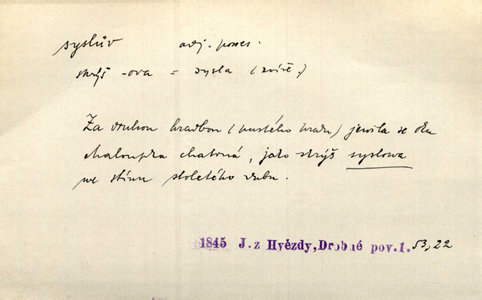 syslův adj. posses.
skrýš -ova = sysla (zvíř.)
Za druhou hradbou (pustého hradu) jevila se oku
chaloupka chatrná, jako skrýš syslova
ve stínu stoletého dubu.
1845 J. z Hvězdy, Drobné pov.1. 53,22